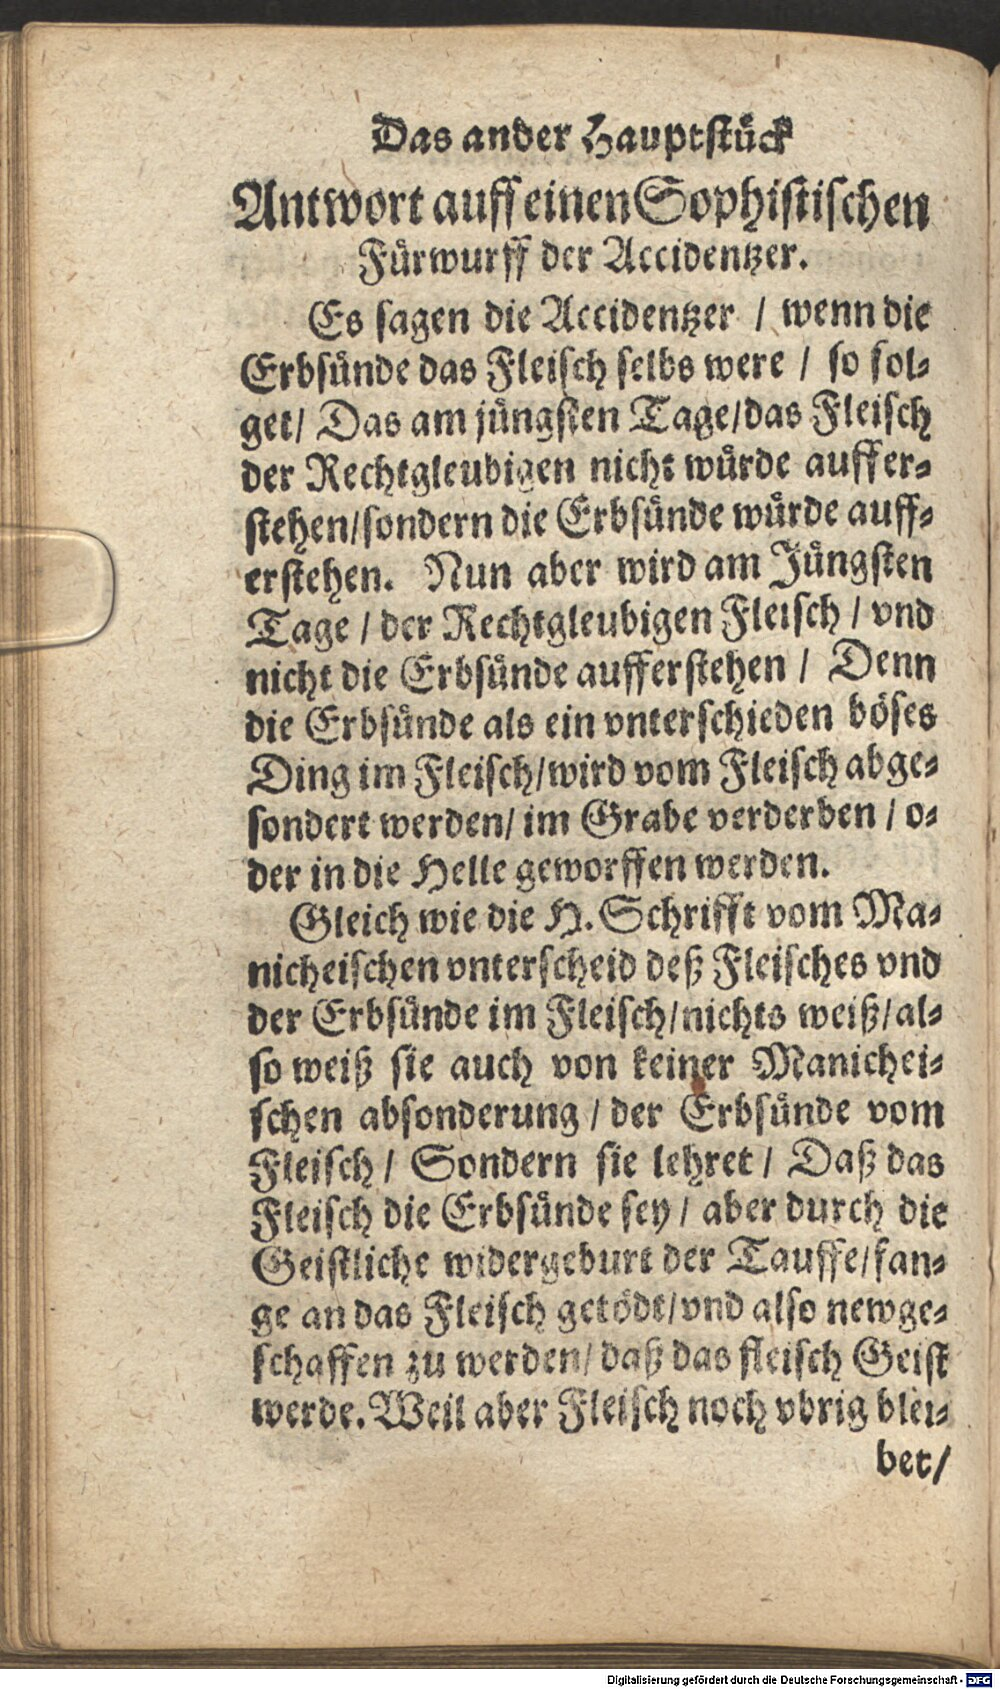 Das ander Hauptſtück
Antwort auff einen Sophiſtiſchen
Fürwurff der Accidentzer.
Es ſagen die Accidentzer / wenn die
Erbſünde das Fleiſch ſelbs were / ſo fol⸗
get / Das am jüngſten Tage / das Fleiſch
der Rechtgleubigen nicht würde auffer⸗
ſtehen / ſondern die Erbſünde würde auff⸗
erſtehen. Nun aber wird am Jüngſten
Tage / der Rechtgleubigen Fleiſch / vnd
nicht die Erbſünde aufferſtehen / Denn
die Erbſünde als ein vnterſchieden böſes
Ding im Fleiſch / wird vom Fleiſch abge⸗
ſondert werden / im Grabe verderben / o⸗
der in die Helle geworffen werden.
Gleich wie die H. Schrifft vom Ma⸗
nicheiſchen vnterſcheid deß Fleiſches vnd
der Erbſünde im Fleiſch / nichts weiß / al⸗
ſo weiß ſie auch von keiner Manichei⸗
ſchen abſonderung / der Erbſünde vom
Fleiſch / Sondern ſie lehret / Daß das
Fleiſch die Erbſünde ſey / aber durch die
Geiſtliche widergeburt der Tauffe / fan⸗
ge an das Fleiſch getödt / vnd alſo newge⸗
ſchaffen zu werden / daß das fleiſch Geiſt
werde. Weil aber Fleiſch noch vbrig blei⸗
bet /
Digitalisierung gefördert durch die Deutsche Forschungsgemeinschaft - DFG